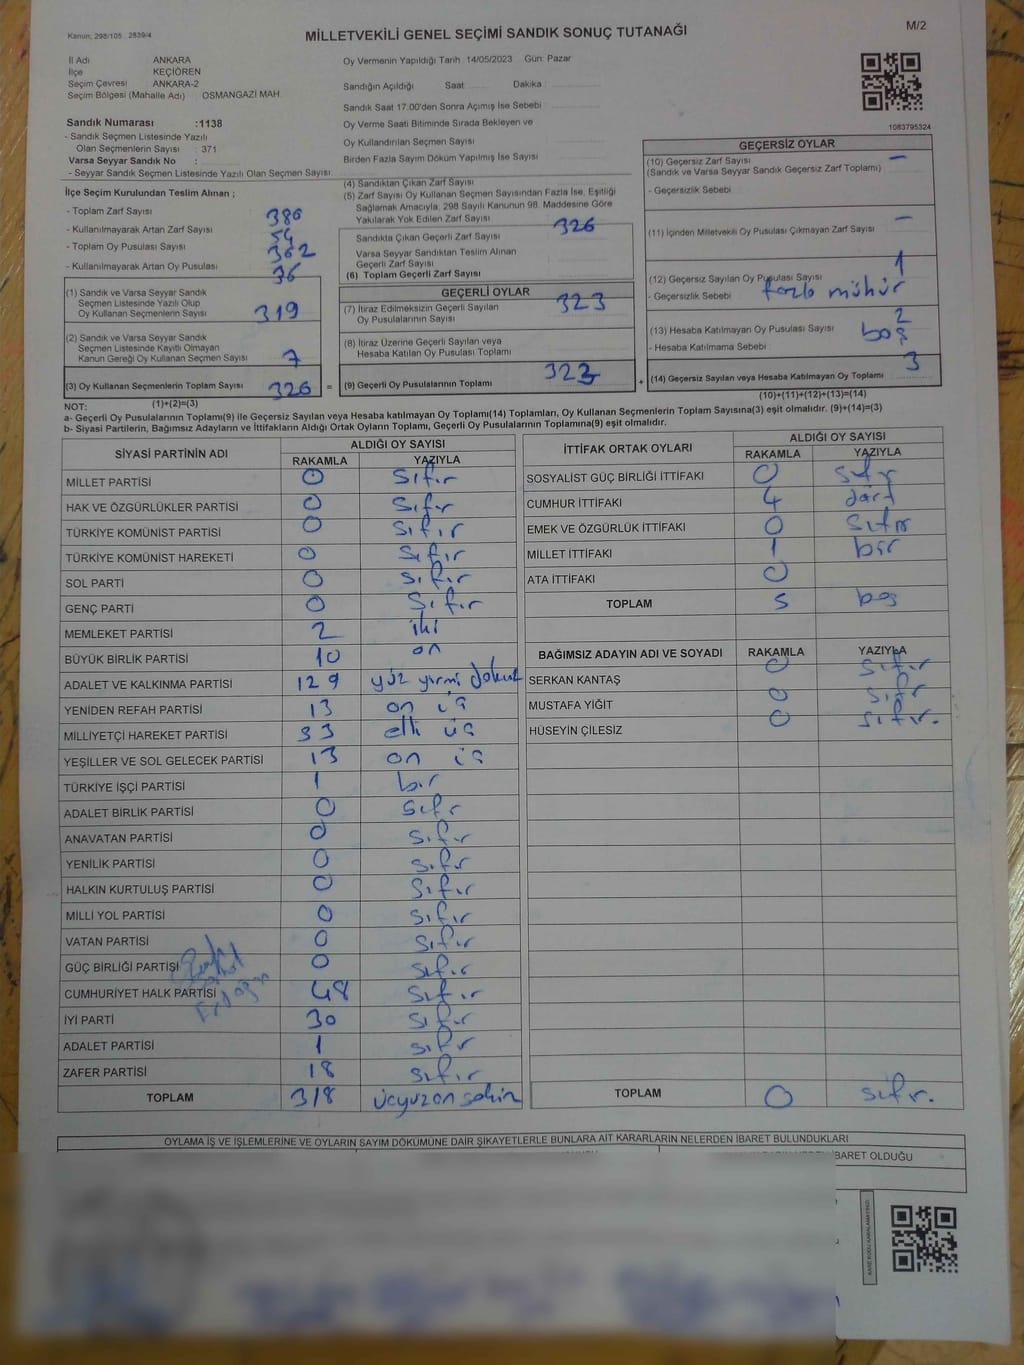 Kanun, 298/105 2839/4
MİLLETVEKİLİ GENEL SEÇİMİ SANDIK SONUÇ TUTANAĞI
M/2
İl Adı ANKARA
İlçe KEÇİÖREN
Seçim Çevresi ANKARA-2
Seçim Bölgesi (Mahalle Adı) OSMANGAZİ MAH.
Oy Vermenin Yapıldığı Tarih 14/05/2023 Gün: Pazar
Sandığın Açıldığı Saat Dakika :
Sandık Saat 17.00'den Sonra Açımış İse Sebebi :
Oy Verme Saati Bitiminde Sırada Bekleyen ve
Oy Kullandırılan Seçmen Sayısı
Birden Fazla Sayım Döküm Yapılmış İse Sayısı
1083795324
Sandık Numarası :1138
- Sandık Seçmen Listesinde Yazılı
Olan Seçmenlerin Sayısı : 371
Varsa Seyyar Sandık No :
- Seyyar Sandık Seçmen Listesinde Yazılı Olan Seçmen Sayısı:
İlçe Seçim Kurulundan Teslim Alınan ;
- Toplam Zarf Sayısı 386
- Kullanılmayarak Artan Zarf Sayısı 54
- Toplam Oy Pusulası Sayısı 362
- Kullanılmayarak Artan Oy Pusulası 36
(1) Sandık ve Varsa Seyyar Sandık
Seçmen Listesinde Yazılı Olup
Oy Kullanan Seçmenlerin Sayısı 319
(2) Sandık ve Varsa Seyyar Sandık
Seçmen Listesinde Kayıtlı Olmayan
Kanun Gereği Oy Kullanan Seçmen Sayısı 7
(3) Oy Kullanan Seçmenlerin Toplam Sayısı 326 =
(1)+(2)=(3)
(4) Sandıktan Çıkan Zarf Sayısı
(5) Zarf Sayısı Oy Kullanan Seçmen Sayısından Fazla İse, Eşitliği
Sağlamak Amacıyla, 298 Sayılı Kanunun 98. Maddesine Göre
Yakılarak Yok Edilen Zarf Sayısı
Sandıkta Çıkan Geçerli Zarf Sayısı 326
Varsa Seyyar Sandıktan Teslim Alınan
Geçerli Zarf Sayısı
(6) Toplam Geçerli Zarf Sayısı
GEÇERLİ OYLAR
(7) İtiraz Edilmeksizin Geçerli Sayılan
Oy Pusulalarının Sayısı 323
(8) İtiraz Üzerine Geçerli Sayılan veya
Hesaba Katılan Oy Pusulası Toplamı
(9) Geçerli Oy Pusulalarının Toplamı 323 +
GEÇERSİZ OYLAR
(10) Geçersiz Zarf Sayısı –
(Sandık ve Varsa Seyyar Sandık Geçersiz Zarf Toplamı)
- Geçersizlik Sebebi
(11) İçinden Milletvekili Oy Pusulası Çıkmayan Zarf Sayısı –
(12) Geçersiz Sayılan Oy Pusulası Sayısı 1
- Geçersizlik Sebebi fazla mühür
(13) Hesaba Katılmayan Oy Pusulası Sayısı 2
- Hesaba Katılmama Sebebi boş
(14) Geçersiz Sayılan veya Hesaba Katılmayan Oy Toplamı 3
(10)+(11)+(12)+(13)=(14)
NOT:
a- Geçerli Oy Pusulalarının Toplamı(9) ile Geçersiz Sayılan veya Hesaba katılmayan Oy Toplamı(14) Toplamları, Oy Kullanan Seçmenlerin Toplam Sayısına(3) eşit olmalıdır. (9)+(14)=(3)
b- Siyasi Partilerin, Bağımsız Adayların ve İttifakların Aldığı Ortak Oyların Toplamı, Geçerli Oy Pusulalarının Toplamına(9) eşit olmalıdır.
SİYASİ PARTİNİN ADI ALDIĞI OY SAYISI
RAKAMLA YAZIYLA
MİLLET PARTİSİ 0 sıfır
HAK VE ÖZGÜRLÜKLER PARTİSİ 0 sıfır
TÜRKİYE KOMÜNİST PARTİSİ 0 sıfır
TÜRKİYE KOMÜNİST HAREKETİ 0 sıfır
SOL PARTİ 0 sıfır
GENÇ PARTİ 0 sıfır
MEMLEKET PARTİSİ 2 iki
BÜYÜK BİRLİK PARTİSİ 10 on
ADALET VE KALKINMA PARTİSİ 129 yüz yirmi dokuz
YENİDEN REFAH PARTİSİ 13 on üç
MİLLİYETÇİ HAREKET PARTİSİ 53 elli üç
YEŞİLLER VE SOL GELECEK PARTİSİ 13 on üç
TÜRKİYE İŞÇİ PARTİSİ 1 bir
ADALET BİRLİK PARTİSİ 0 sıfır
ANAVATAN PARTİSİ 0 sıfır
YENİLİK PARTİSİ 0 sıfır
HALKIN KURTULUŞ PARTİSİ 0 sıfır
MİLLİ YOL PARTİSİ 0 sıfır
VATAN PARTİSİ 0 sıfır
GÜÇ BİRLİĞİ PARTİSİ 0 sıfır
CUMHURİYET HALK PARTİSİ 48 sıfır
İYİ PARTİ 30 sıfır
ADALET PARTİSİ 1 sıfır
ZAFER PARTİSİ 18 sıfır
TOPLAM 318 üçyüzonsekiz
İTTİFAK ORTAK OYLARI ALDIĞI OY SAYISI
RAKAMLA YAZIYLA
SOSYALİST GÜÇ BİRLİĞİ İTTİFAKI 0 sıfır
CUMHUR İTTİFAKI 4 dört
EMEK VE ÖZGÜRLÜK İTTİFAKI 0 sıfır
MİLLET İTTİFAKI 1 bir
ATA İTTİFAKI 0
TOPLAM 5 beş
BAĞIMSIZ ADAYIN ADI VE SOYADI RAKAMLA YAZIYLA
SERKAN KANTAŞ 0 sıfır
MUSTAFA YİĞİT 0 sıfır
HÜSEYİN ÇİLESİZ 0 sıfır.
TOPLAM 0 sıfır.
OYLAMA İŞ VE İŞLEMLERİNE VE OYLARIN SAYIM DÖKÜMÜNE DAİR ŞİKAYETLERLE BUNLARA AİT KARARLARIN NELERDEN İBARET BULUNDUKLARI
BARET OLDUĞU